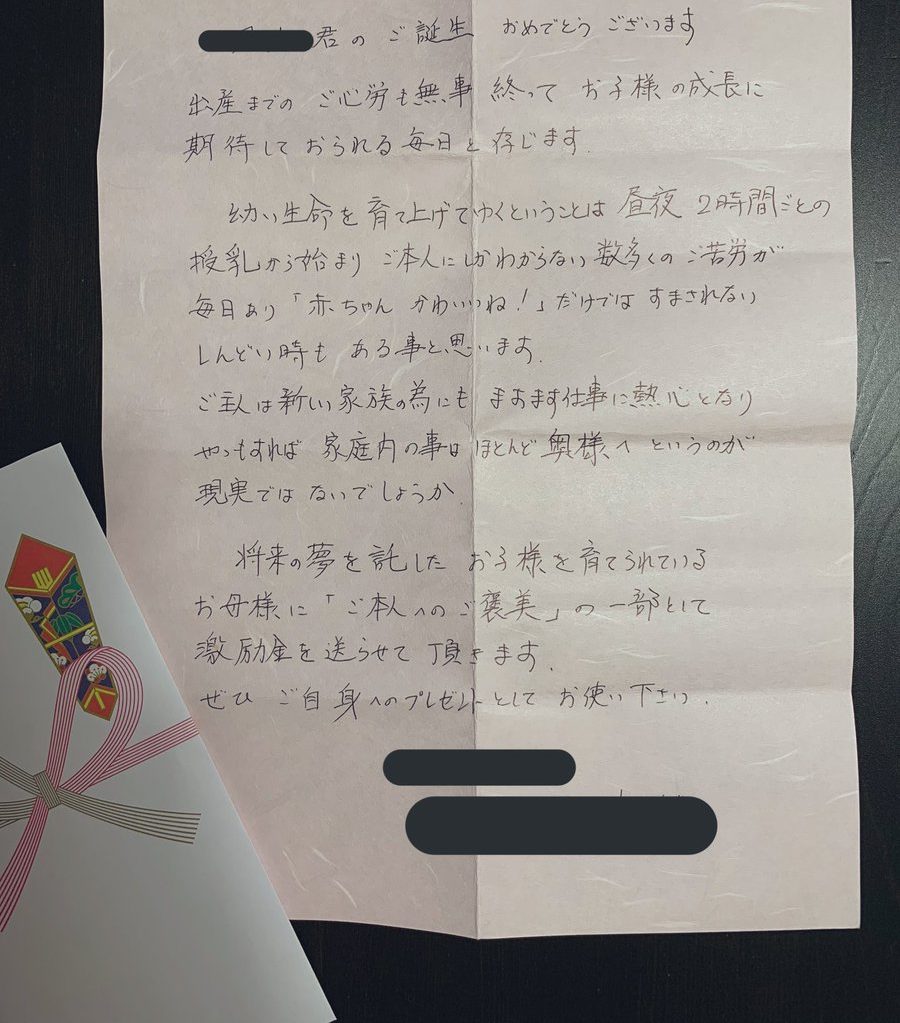 君の ご誕生 おめでとう ございます
出産までの ご心労も無事 終って お子様の成長に
期待して おられる 毎日と 存じます.
幼い生命を 育て上げてゆくということは 昼夜 2時間ごとの
授乳から始まり ご本人にしかわからない 数多くの ご苦労が
毎日あり 「赤ちゃん かわいいね!」だけでは すまされない
しんどい時も ある事と思います.
ご主人は新しい家族の為にも ますます仕事に熱心となり
やゝもすれば 家庭内の事は ほとんど 奥様へ というのが
現実では ないでしょうか.
将来の夢を 託した お子様を 育てられている
お母様に 「ご本人への ご褒美」の一部として
激励金を 送らせて 頂きます.
ぜひ ご自身へのプレゼントとして お使い下さい.